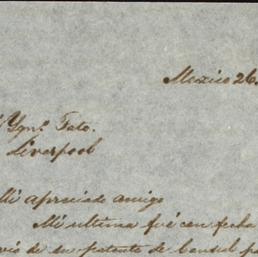 Mexico 26
Ygno. Tato.
Liverpool
Mi apreciado amigo
Mi ultima fué con fecha
de su patente de Consul